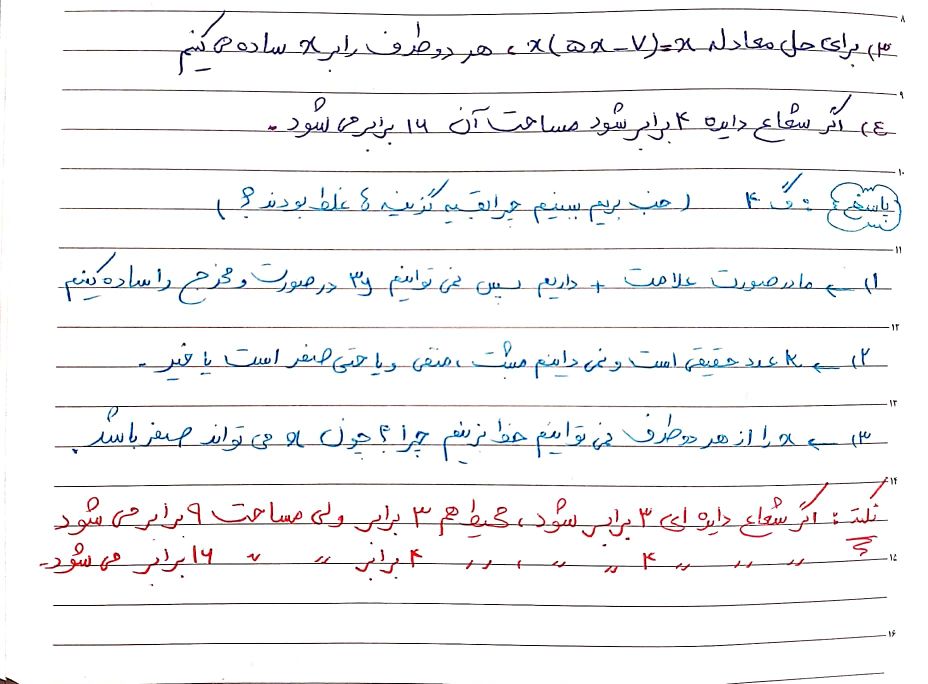 ۸
۳) برای حل معادله x(۵x-۷)=x ، هر دو طرف را بر x ساده می کنیم
۹
۴) اگر شعاع دایره ۴ برابر شود مساحت آن ۱۶ برابر می شود .
۱۰
پاسخ : گ ۴ ( خب بریم ببینیم چرا بقیه گزینه ها غلط بودند ؟ )
۱۱
۱) ← ما در صورت علامت + داریم پس نمی توانیم ۳y در صورت و مخرج را ساده کنیم
۱۲
۲) ← k عدد حقیقی است و نمی دانیم مثبت ، منفی و یا حتی صفر است یا خیر .
۱۳
۳) ← x را از هر دو طرف نمی توانیم خط بزنیم چرا ؟ چون x می تواند صفر باشد
۱۴
نکته : اگر شعاع دایره ای ۳ برابر شود ، محیط هم ۳ برابر ولی مساحت ۹ برابر می شود
۱۵
〃 〃 〃 ۴ 〃 〃 ، 〃 〃 ۴ برابر 〃 〃 ۱۶ برابر می شود.
۱۶